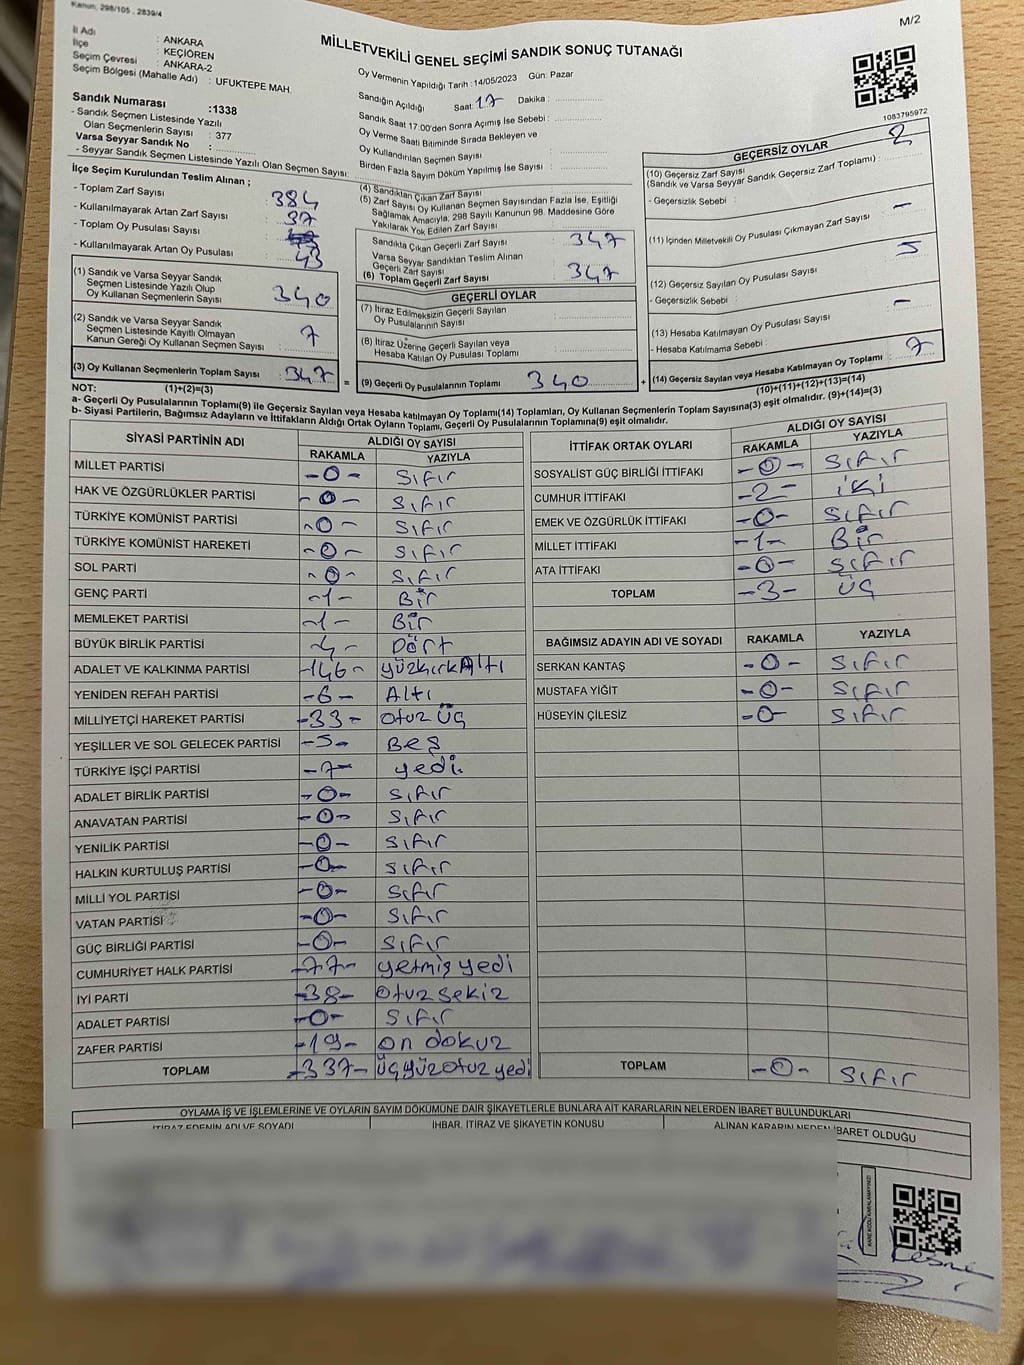 Kanun, 298/105 , 2839/4
M/2
MİLLETVEKİLİ GENEL SEÇİMİ SANDIK SONUÇ TUTANAĞI
İl Adı : ANKARA
İlçe : KEÇİÖREN
Seçim Çevresi : ANKARA-2
Seçim Bölgesi (Mahalle Adı) : UFUKTEPE MAH.
Sandık Numarası :1338
- Sandık Seçmen Listesinde Yazılı
Olan Seçmenlerin Sayısı : 377
Varsa Seyyar Sandık No :
- Seyyar Sandık Seçmen Listesinde Yazılı Olan Seçmen Sayısı:
Oy Vermenin Yapıldığı Tarih :14/05/2023 Gün: Pazar
Sandığın Açıldığı Saat: 17 Dakika :
Sandık Saat 17:00'den Sonra Açımış İse Sebebi :
Oy Verme Saati Bitiminde Sırada Bekleyen ve
Oy Kullandırılan Seçmen Sayısı :
Birden Fazla Sayım Döküm Yapılmış İse Sayısı :
1083795972
İlçe Seçim Kurulundan Teslim Alınan ;
- Toplam Zarf Sayısı : 384
- Kullanılmayarak Artan Zarf Sayısı : 37
- Toplam Oy Pusulası Sayısı :
- Kullanılmayarak Artan Oy Pusulası : 43
(1) Sandık ve Varsa Seyyar Sandık
Seçmen Listesinde Yazılı Olup
Oy Kullanan Seçmenlerin Sayısı : 340
(2) Sandık ve Varsa Seyyar Sandık
Seçmen Listesinde Kayıtlı Olmayan
Kanun Gereği Oy Kullanan Seçmen Sayısı : 7
(3) Oy Kullanan Seçmenlerin Toplam Sayısı : 347
(4) Sandıktan Çıkan Zarf Sayısı :
(5) Zarf Sayısı Oy Kullanan Seçmen Sayısından Fazla İse, Eşitliği
Sağlamak Amacıyla, 298 Sayılı Kanunun 98. Maddesine Göre
Yakılarak Yok Edilen Zarf Sayısı :
Sandıkta Çıkan Geçerli Zarf Sayısı : 347
Varsa Seyyar Sandıktan Teslim Alınan
Geçerli Zarf Sayısı :
(6) Toplam Geçerli Zarf Sayısı : 347
GEÇERLİ OYLAR
(7) İtiraz Edilmeksizin Geçerli Sayılan
Oy Pusulalarının Sayısı :
(8) İtiraz Üzerine Geçerli Sayılan veya
Hesaba Katılan Oy Pusulası Toplamı :
= (9) Geçerli Oy Pusulalarının Toplamı 340
GEÇERSİZ OYLAR
(10) Geçersiz Zarf Sayısı 2
(Sandık ve Varsa Seyyar Sandık Geçersiz Zarf Toplamı) :
- Geçersizlik Sebebi :
(11) İçinden Milletvekili Oy Pusulası Çıkmayan Zarf Sayısı : -
(12) Geçersiz Sayılan Oy Pusulası Sayısı : 5
- Geçersizlik Sebebi :
(13) Hesaba Katılmayan Oy Pusulası Sayısı : -
- Hesaba Katılmama Sebebi :
+ (14) Geçersiz Sayılan veya Hesaba Katılmayan Oy Toplamı : 7
NOT: (1)+(2)=(3)
(10)+(11)+(12)+(13)=(14)
a- Geçerli Oy Pusulalarının Toplamı(9) ile Geçersiz Sayılan veya Hesaba katılmayan Oy Toplamı(14) Toplamları, Oy Kullanan Seçmenlerin Toplam Sayısına(3) eşit olmalıdır. (9)+(14)=(3)
b- Siyasi Partilerin, Bağımsız Adayların ve İttifakların Aldığı Ortak Oyların Toplamı, Geçerli Oy Pusulalarının Toplamına(9) eşit olmalıdır.
SİYASİ PARTİNİN ADI ALDIĞI OY SAYISI
RAKAMLA YAZIYLA
MİLLET PARTİSİ -0- Sıfır
HAK VE ÖZGÜRLÜKLER PARTİSİ -0- Sıfır
TÜRKİYE KOMÜNİST PARTİSİ -0- Sıfır
TÜRKİYE KOMÜNİST HAREKETİ -0- Sıfır
SOL PARTİ -0- Sıfır
GENÇ PARTİ -1- Bir
MEMLEKET PARTİSİ -1- Bir
BÜYÜK BİRLİK PARTİSİ -4- Dört
ADALET VE KALKINMA PARTİSİ -146- yüzkırkAltı
YENİDEN REFAH PARTİSİ -6- Altı
MİLLİYETÇİ HAREKET PARTİSİ -33- otuz üç
YEŞİLLER VE SOL GELECEK PARTİSİ -5- Beş
TÜRKİYE İŞÇİ PARTİSİ -7- yedi.
ADALET BİRLİK PARTİSİ -0- Sıfır
ANAVATAN PARTİSİ -0- Sıfır
YENİLİK PARTİSİ -0- Sıfır
HALKIN KURTULUŞ PARTİSİ -0- Sıfır
MİLLİ YOL PARTİSİ -0- Sıfır
VATAN PARTİSİ -0- Sıfır
GÜÇ BİRLİĞİ PARTİSİ -0- Sıfır
CUMHURİYET HALK PARTİSİ -77- yetmiş yedi
İYİ PARTİ -38- otuz sekiz
ADALET PARTİSİ -0- Sıfır
ZAFER PARTİSİ -19- on dokuz
TOPLAM -337- üçyüzotuz yedi
İTTİFAK ORTAK OYLARI ALDIĞI OY SAYISI
RAKAMLA YAZIYLA
SOSYALİST GÜÇ BİRLİĞİ İTTİFAKI -0- Sıfır
CUMHUR İTTİFAKI -2- iki
EMEK VE ÖZGÜRLÜK İTTİFAKI -0- Sıfır
MİLLET İTTİFAKI -1- Bir
ATA İTTİFAKI -0- Sıfır
TOPLAM -3- üç
BAĞIMSIZ ADAYIN ADI VE SOYADI RAKAMLA YAZIYLA
SERKAN KANTAŞ -0- Sıfır
MUSTAFA YİĞİT -0- Sıfır
HÜSEYİN ÇİLESİZ -0- Sıfır
TOPLAM -0- Sıfır
OYLAMA İŞ VE İŞLEMLERİNE VE OYLARIN SAYIM DÖKÜMÜNE DAİR ŞİKAYETLERLE BUNLARA AİT KARARLARIN NELERDEN İBARET BULUNDUKLARI
İTİRAZ EDENİN ADI VE SOYADI İHBAR, İTİRAZ VE ŞİKAYETİN KONUSU ALINAN KARARIN NEDEN İBARET OLDUĞU